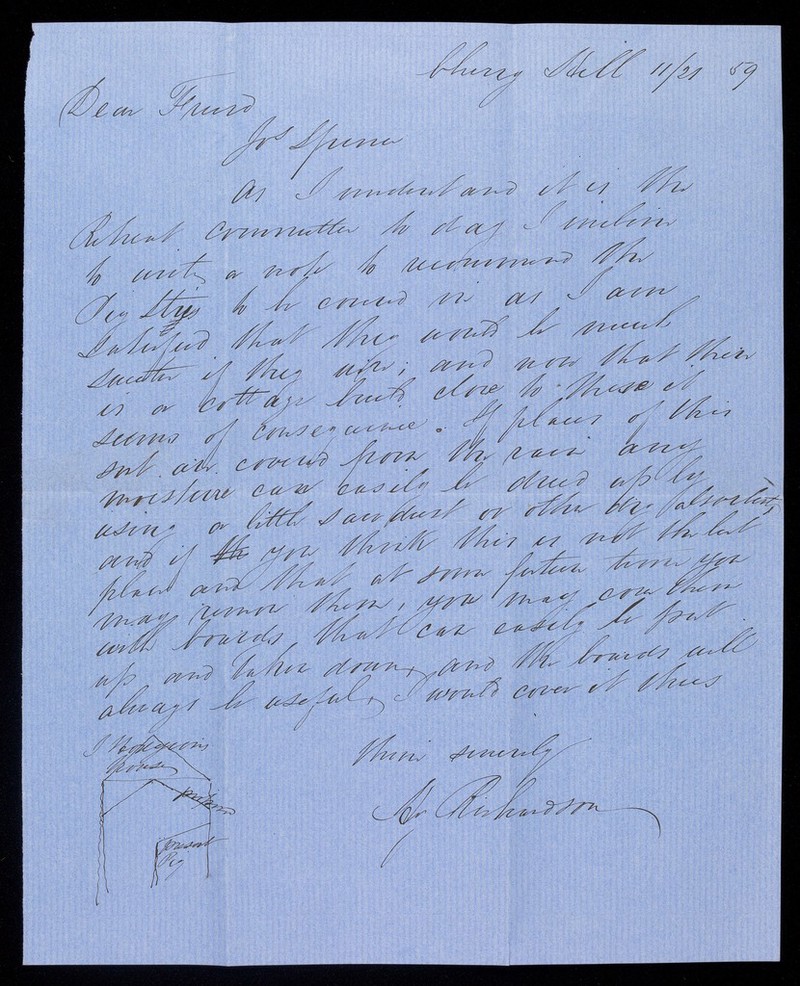 Cherry Hill 11/21 59
Dear Friend
Jos Spence
As I understand it is the
Retreat committee to day I incline
to write a note to recommend the
Pig Stys to be covered in as I am
Satisfied that they would be much
sweeter if they were; and now that there
is a cottage build close to these it
seems of consequence. If places of this
sort are covered from the rain any
moisture can easily be dried up by
using a little sawdust or other dry absorbent,
and if the you think this is not the best
place and that at some future time you
may remove them, you may cover them
with boards, that can easily be put
up and taken down, and the boards will
always be useful, I would cover it thus
thine sincerely
Richardson
house
present
Pig